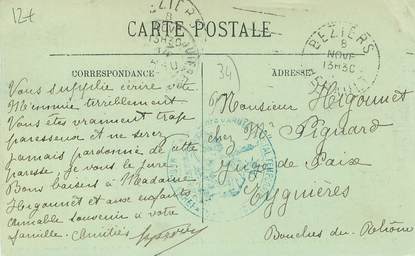 12+
CARTE POSTALE
BEZIERS
8
NOVE
13H30
BEZIERS
8
NOVE
13H30
34
CORRESPONDANCE
ADRESSE
Vous supplie écrire vite
M'ennuie terriblement
Vous êtes vraiment trop
paresseux et ne serez
jamais pardonné de cette
paresse, je vous le jure
Bons baisers à Madame
Higounet et aux enfants
Aimable souvenir à votre
famille. Amitiés
Monsieur Higounet
chez Mr Pignard
Juge de Paix
Eyguières
Bouches du Rhône